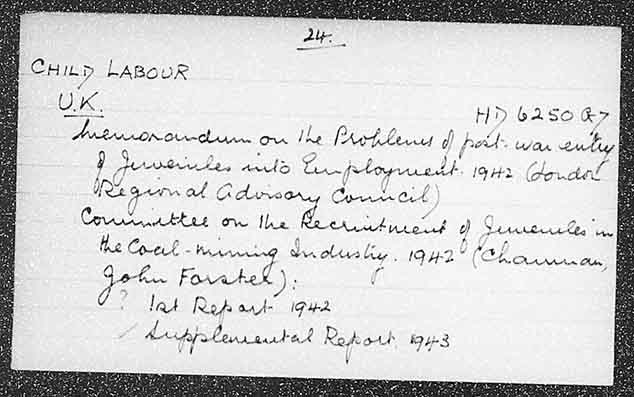 24.
CHILD LABOUR
U.K.
HD 6250 G7
Memorandum on the Problems of post-war entry
of Juveniles into Employment. 1942 (London
Regional Advisory Council)
Committee on the Recruitment of Juveniles in
the Coal-mining Industry. 1942 (Chairman,
John Forster):
? 1st Report 1942
/ Supplemental Report. 1943